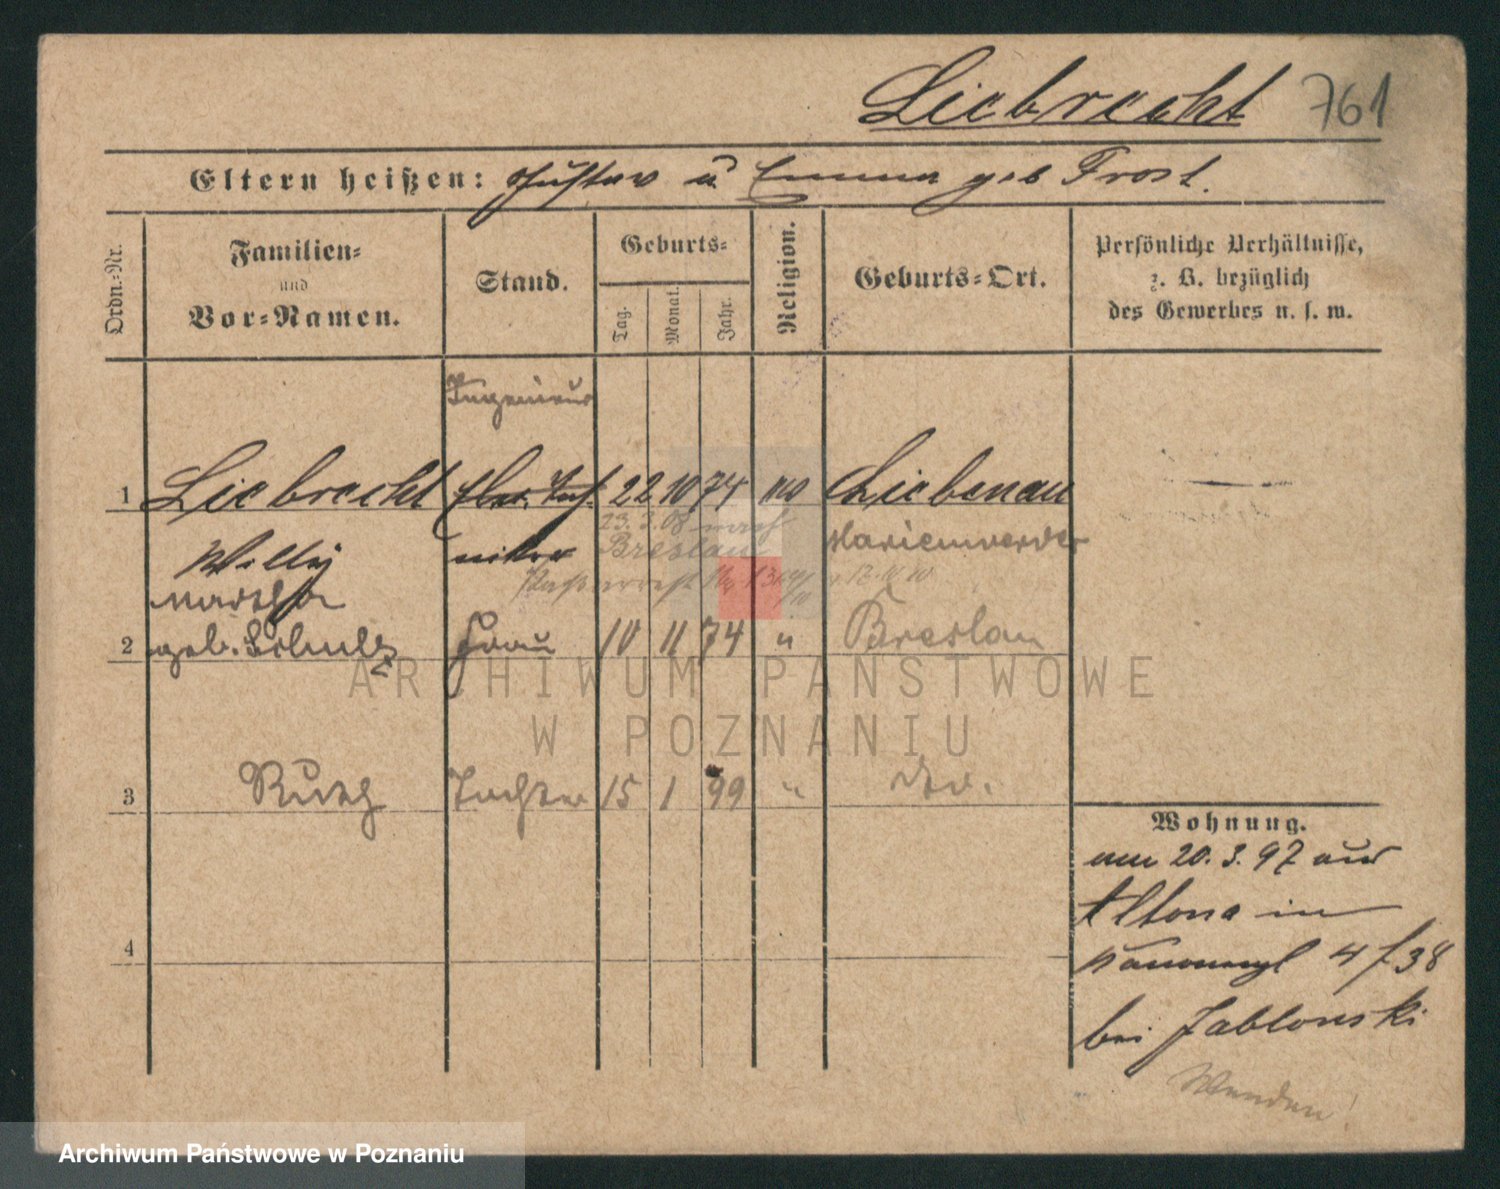 Liebrecht 761
Eltern heißen: Gustav u Emma geb Frost.
Ordn.=Nr.
Familien=
und
Vor=Namen.
Stand.
Geburts=
Tag.
Monat.
Jahr.
Religion.
Geburts=Ort.
Persönliche Verhältnisse,
z. B. bezüglich
des Gewerbes u. s. w.
Ingenieur
1 Liebrecht 22 10 74 Liebenau
Willy
23. 3. 08 nach
Breslau
Marienwerder
Martha
2 geb. Scholz Frau 10 11 74 " Breslau
3 Ruth Tochter 15 1 99 " do.
4
Wohnung.
am 20. 3. 97 aus
Altona in
4 / 38
bei Jablonski
Wenden!
ARCHIWUM PAŃSTWOWE
W POZNANIU
Archiwum Państwowe w Poznaniu